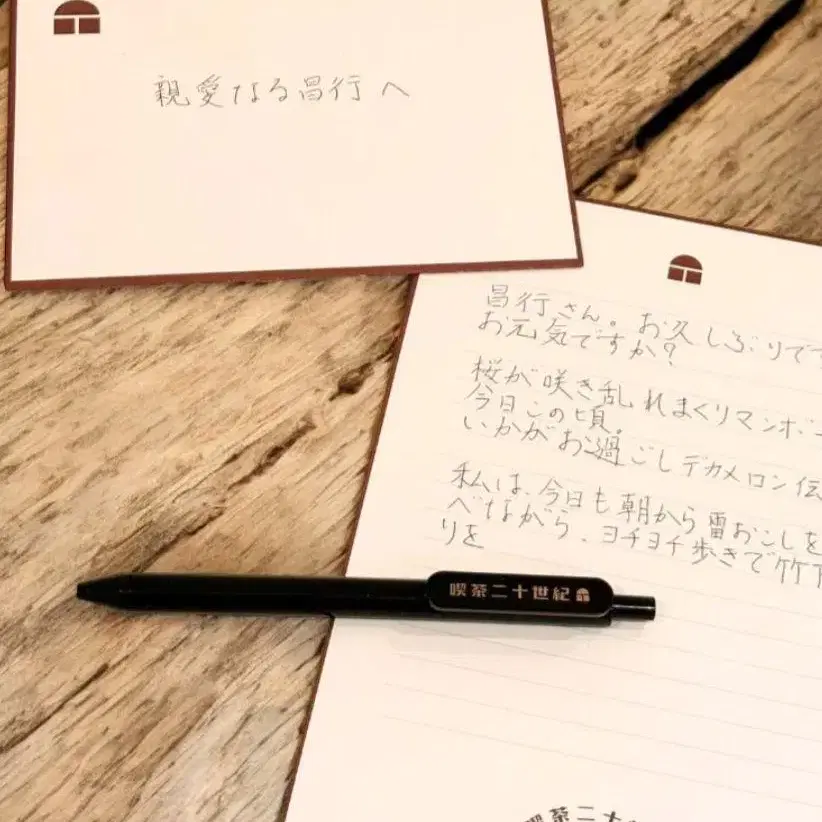 親愛なる昌行へ
昌行さん。お久しぶりです
お元気ですか?
桜が咲き乱れまくりマンボー
今日この頃。
いかがお過ごしデカメロン伝
私は、今日も朝から雷おこしを
べながら、ヨチヨチ歩きで竹下
りを
喫茶二十世紀
喫茶二十